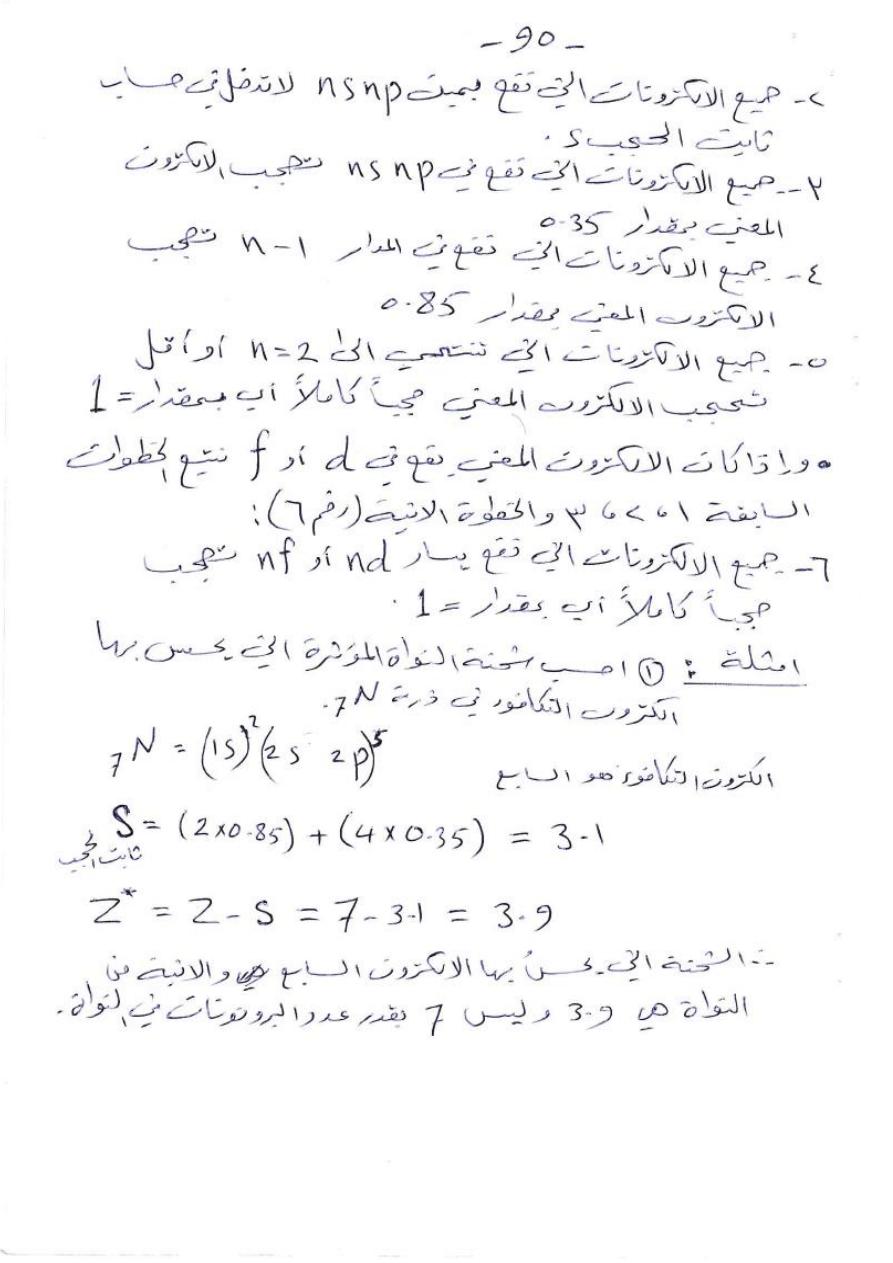 - 90 -
٢- جميع الالكترونات التي تقع يمين nsnp لا تدخل في حساب
ثابت الحجب S.
٣- جميع الالكترونات التي تقع في ns np تحجب الالكترون
المعني بمقدار 0.35
٤- جميع الالكترونات التي تقع في المدار n-1 تحجب
الالكترون المعني بمقدار 0.85
٥- جميع الالكترونات التي تنتمي الى n=2 أو أقل
تحجب الالكترون المعني حجباً كاملاً أي بمقدار = 1
• واذا كان الالكترون المعني يقع في d أو f نتبع الخطوات
السابقة ١ ، ٢ ، ٣ والخطوة الاتية (رقم ٦):
٦- جميع الالكترونات التي تقع يسار nd أو nf تحجب
حجباً كاملاً أي بمقدار = 1 .
امثلة : ① احسب شحنة النواة المؤثرة التي يحس بها
الكترون التكافؤ في ذرة ₇N.
₇N = (1s)² (2s 2p)⁵
الكترون التكافؤ هو السابع
S = (2x0.85) + (4 x 0.35) = 3.1
ثابت الحجب
Z* = Z - S = 7 - 3.1 = 3.9
∴ الشحنة التي يحسُ بها الالكترون السابع والاتية من
النواة هي 3.9 وليس 7 بقدر عدد البروتونات في النواة.